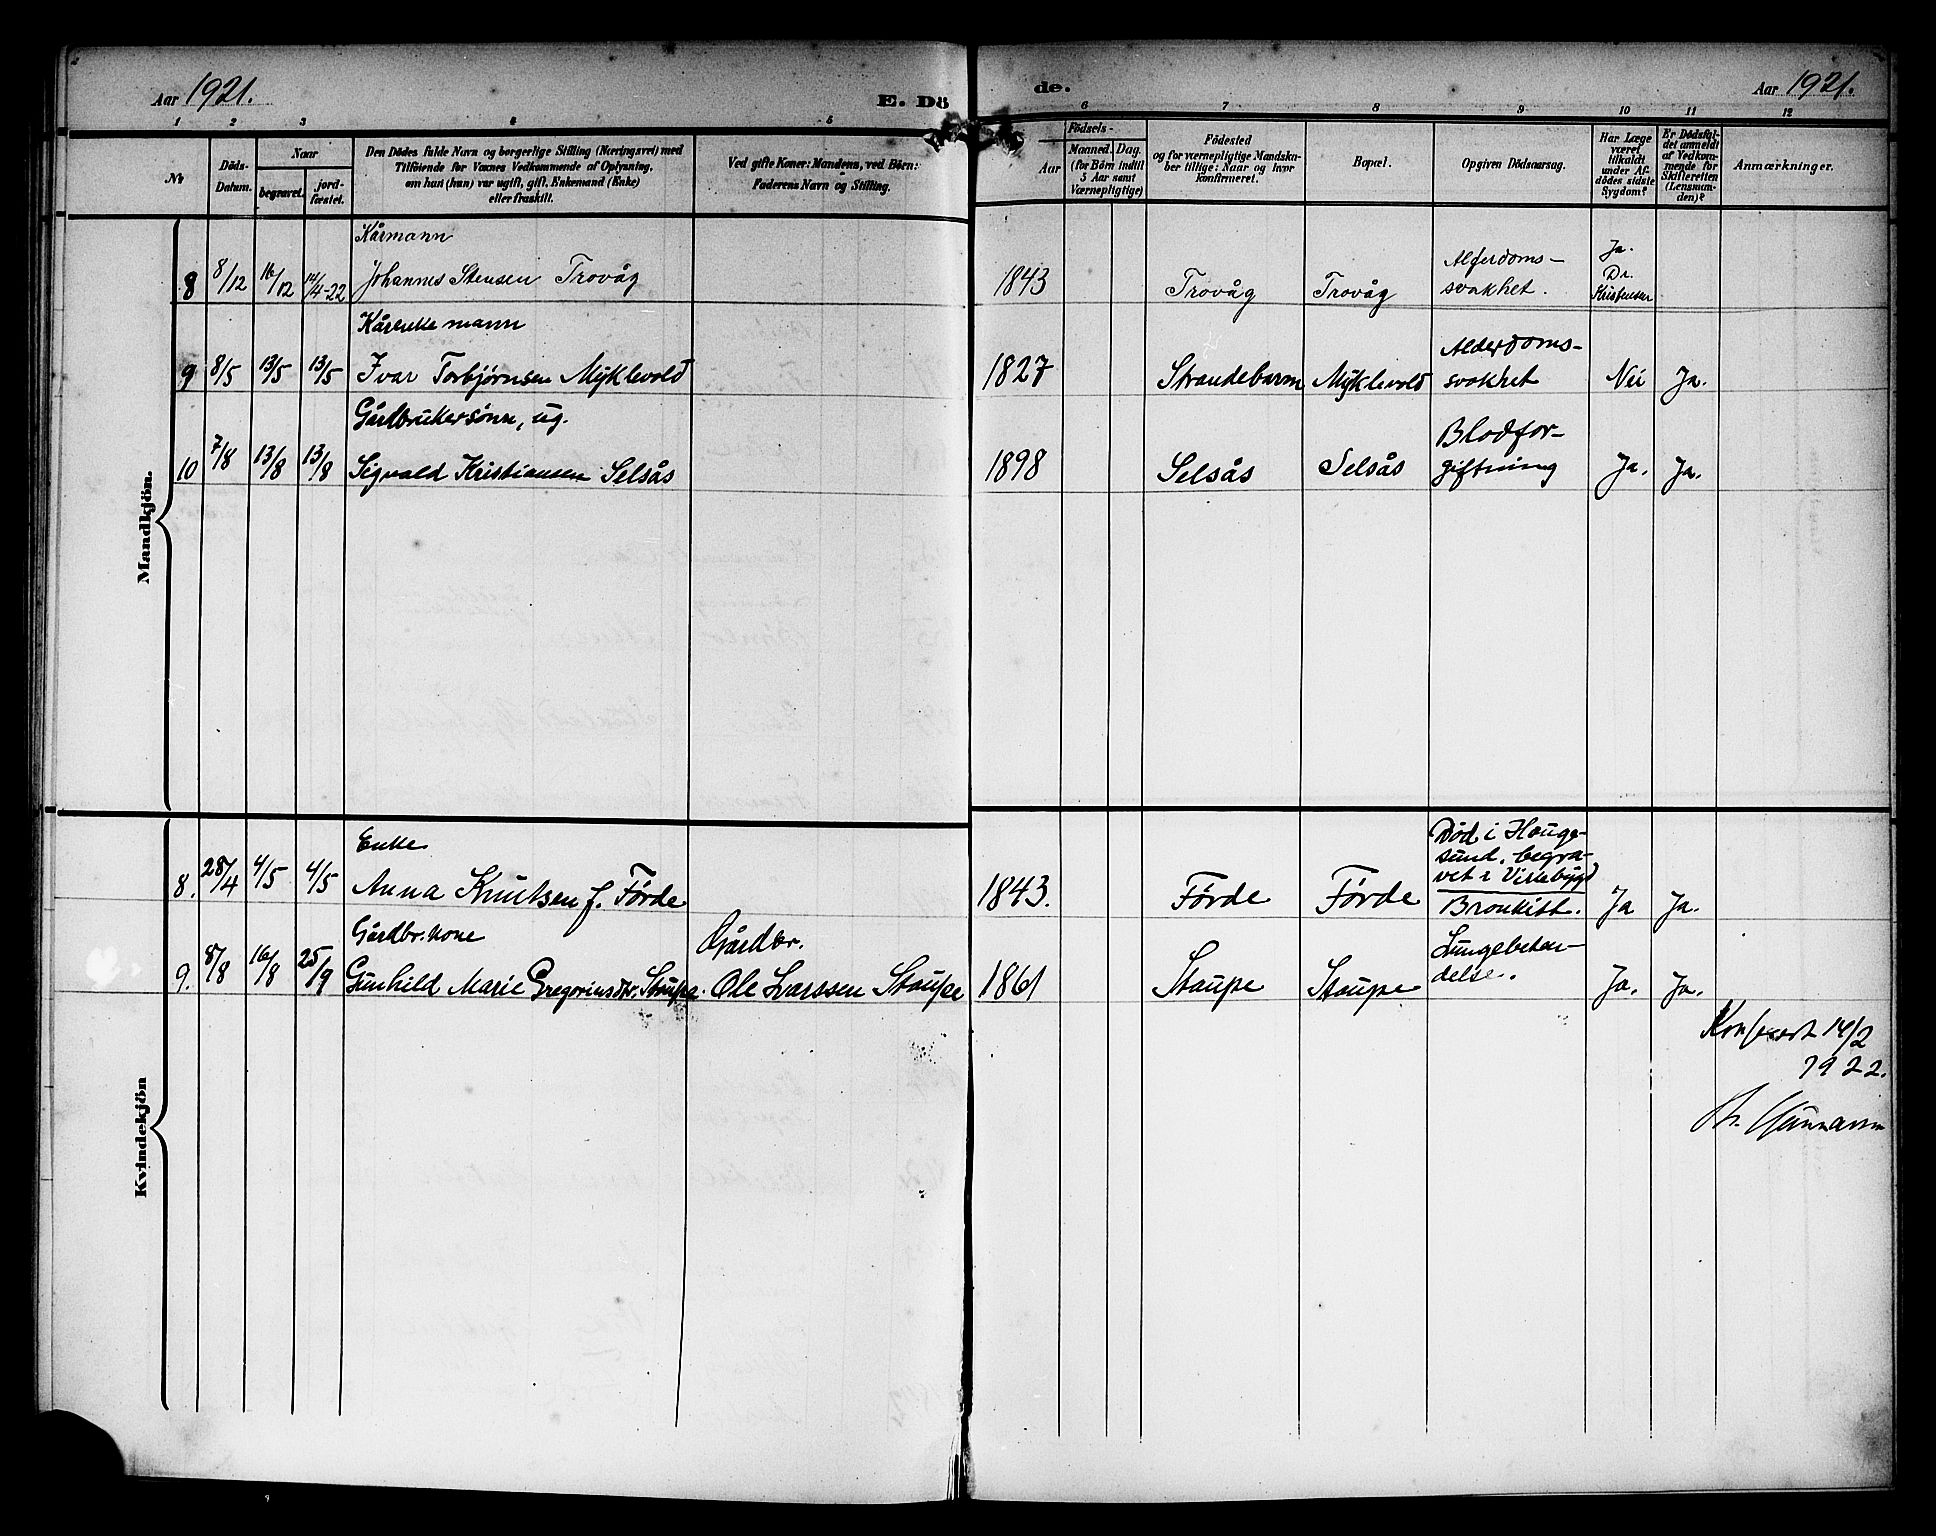 Aar 1921.
E. Dö
de.
Aar 1921.
1 2 3 4 5 6 7 8 9 10 11 12
№
Döds-
Datum.
Naar
begravet.
jord-
fæstet.
Den Dödes fulde Navn og borgerlige Stilling (Næringsvei) med
Tilföiende for Voxnes Vedkommende af Oplysning,
om han (hun) var ugift, gift, Enkemand (Enke)
eller fraskilt.
Ved gifte Koner: Mandens, ved Börn:
Faderens Navn og Stilling.
Födsels-
Aar
Maaned. Dag.
(for Börn indtil
3 Aar samt
Værnepligtige)
Födested
og for værnepligtige Mandska-
ber tillige: Naar og hvor
konfirmeret.
Bopæl.
Opgiven Dödsaarsag.
Har Læge
været
tilkaldt
under Af-
dödes sidste
Sygdom?
Er Dödsfal-
det anmeldt
af Vedkom-
mende for
Skifteretten
(Lensman-
den)?
Anmærkninger.
Mandkjön.
Kårmann
8 8/12 16/12 14/4-22 Johannes Stensen Trovåg 1843 Trovåg Trovåg Alferdoms-
svakhet. Ja.
Dr.
Kristensen
Kårenkemann
9 8/5 13/5 13/5 Ivar Torbjørnsen Myklevold 1827 Strandebarm Myklevold Alderdoms-
svakhet Nei Ja.
Gårdbrukersønn, ug.
10 7/8 13/8 13/8 Sigvald Kristiansen Selsås 1898 Selsås Selsås Blodfor-
giftning Ja. Ja.
Kvindekjön
Enke
8. 28/4 4/5 4/5 Anna Knutsen f. Førde 1843. Førde Førde Død i Hauge-
sund, begra-
vet i Vikebygd
Bronkitt. Ja Ja.
Gårdbr. kone Gårdbr.
9. 8/8 16/8 25/9 Gunhild Marie Gregoriusdtr. Staupe. Ole Larssen Staupe 1861 Staupe Staupe Lungebeten-
delse. Ja. Ja.
Konferert 14/2
1922.